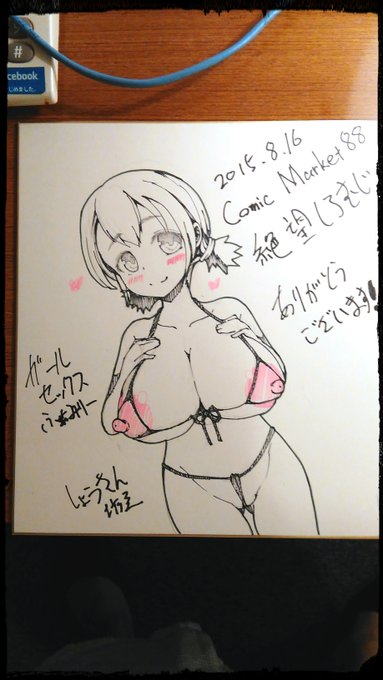 #
cebook
じめました。
2015.8.16
Comic Market 88
絶望しろまじ
ありがとう
ございます!
ガール
セックス
しょうさん